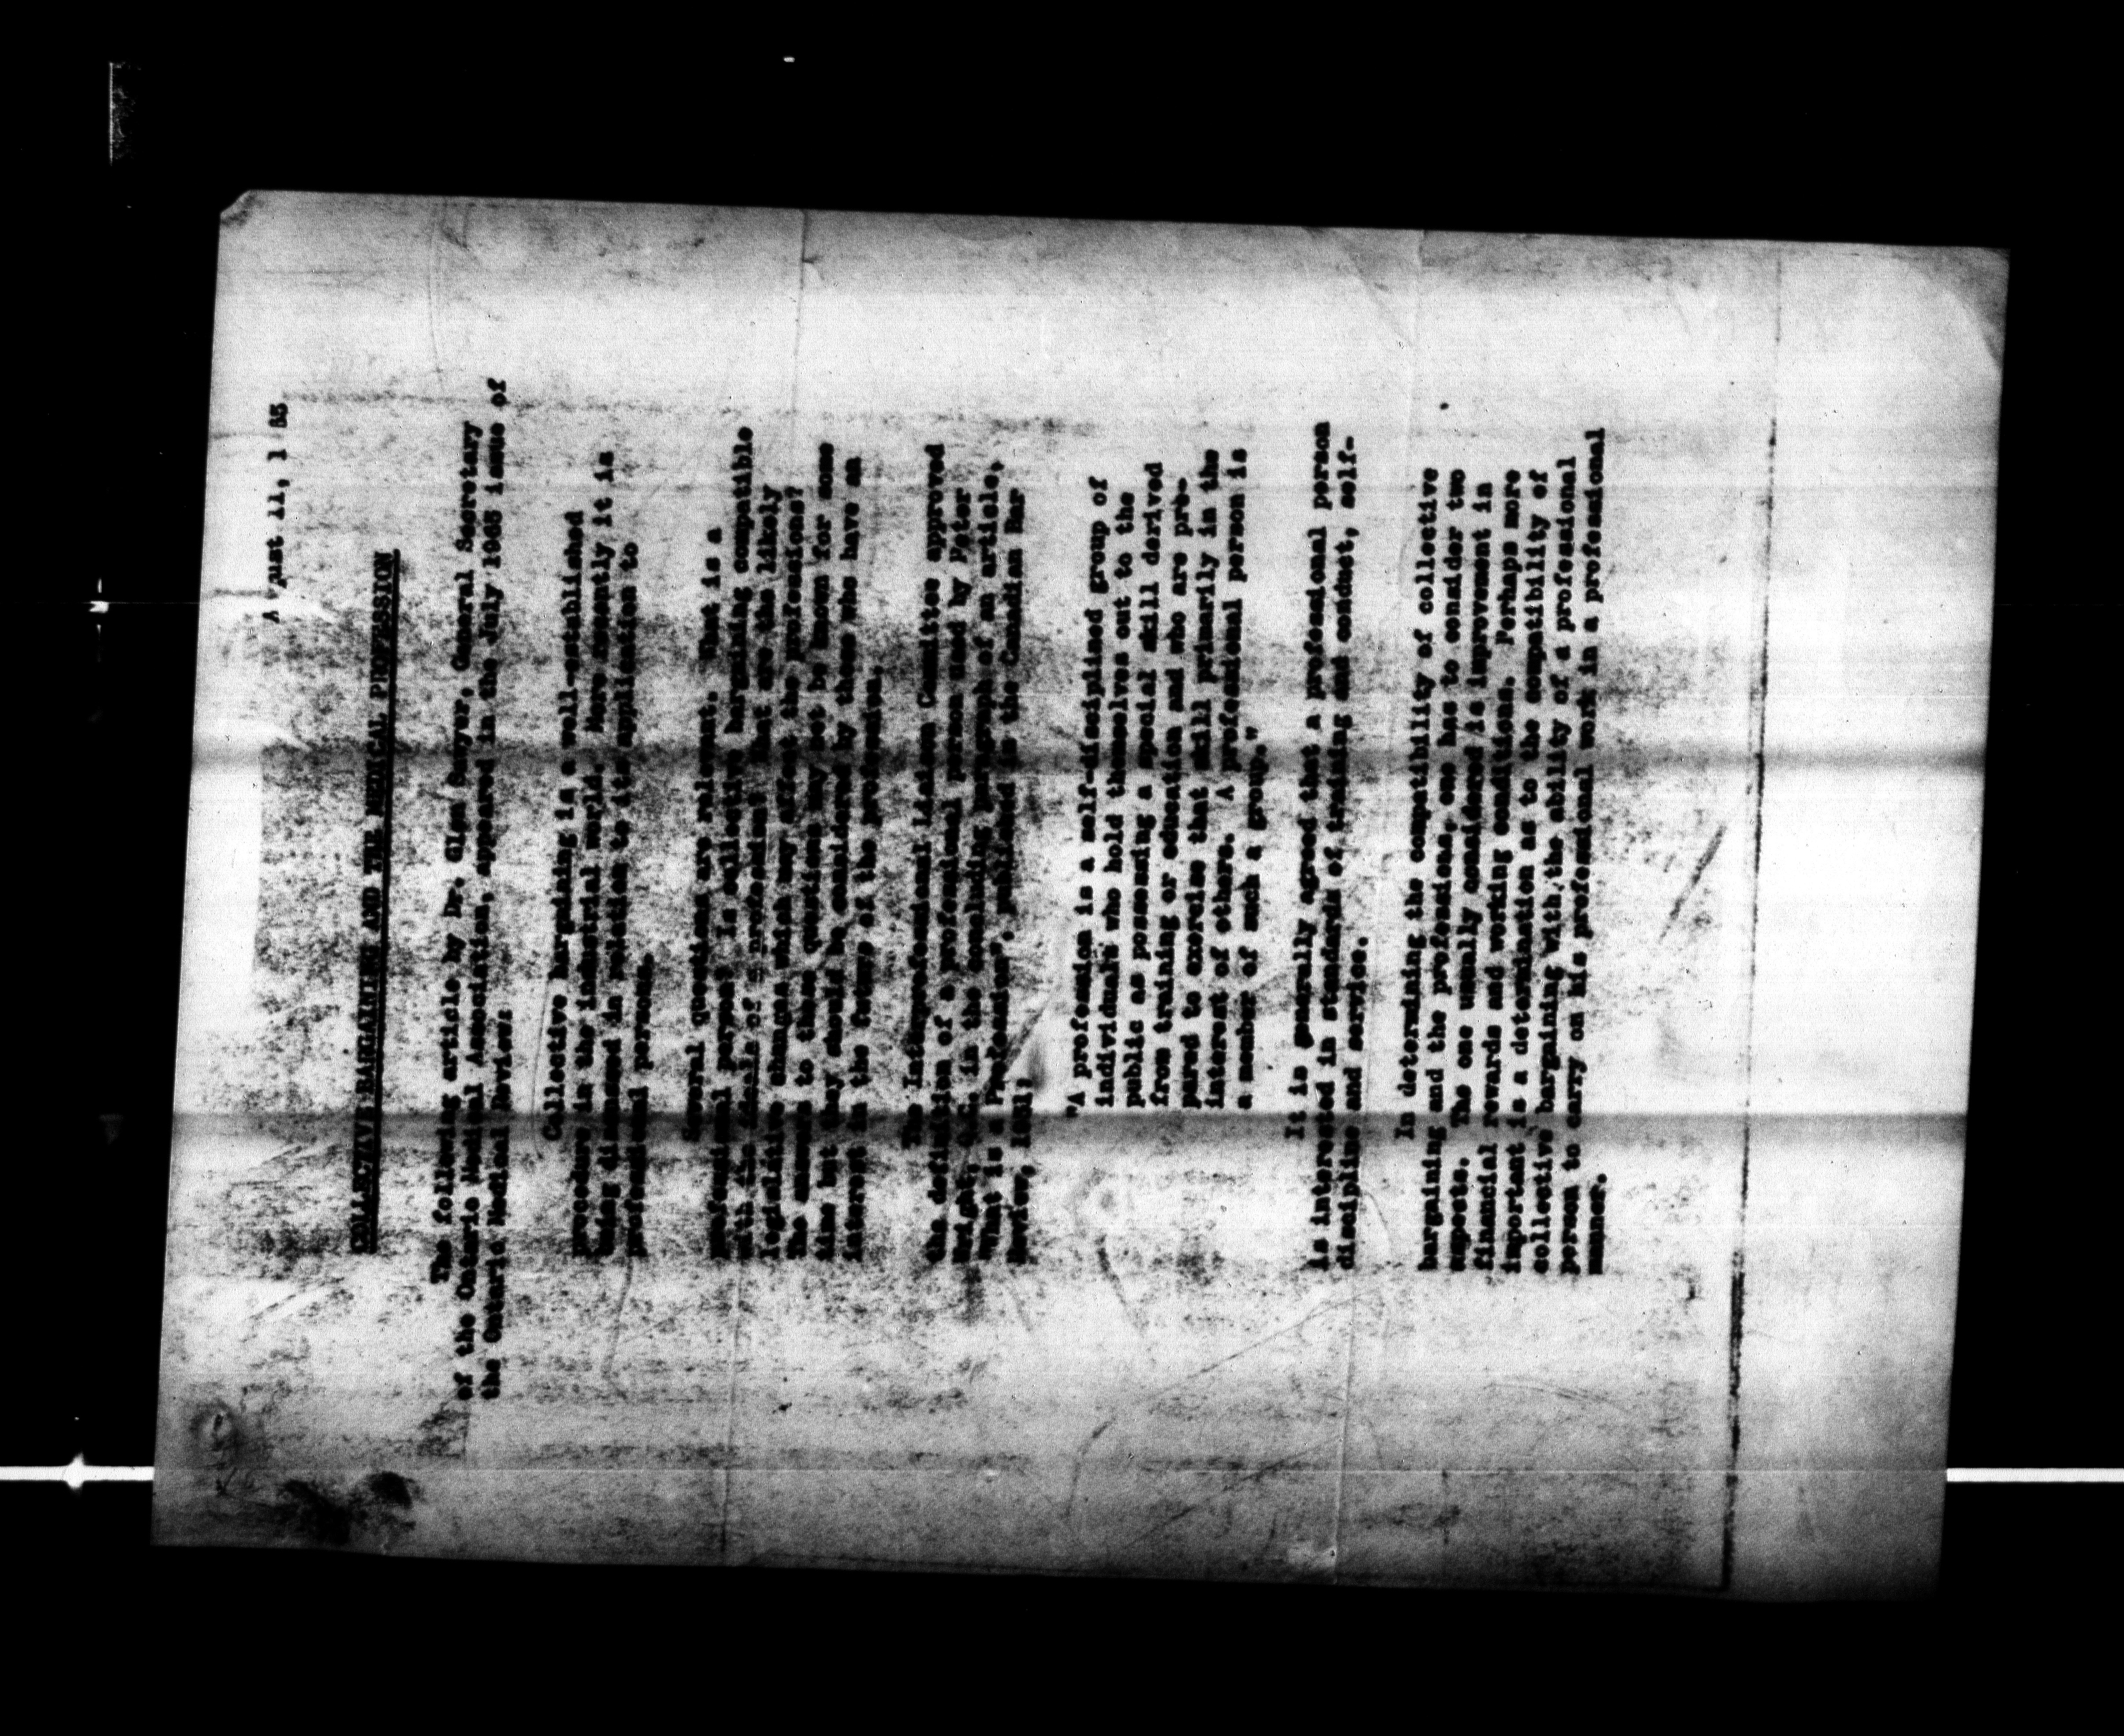 August 11, 1 65
COLLECTIVE BARGAINING AND THE MEDICAL PROFESSION
The following article by Dr. Glenn Sawyer, General Secretary
of the Ontario Medical Association, appeared in the July 1965 issue of
the Ontario Medical Review:
Collective bargaining is a well-established
procedure in the industrial world. More recently it is
being discussed in relation to its application to
professional persons.
Several questions are relevant. What is a
professional person? Is collective bargaining compatible
with the ideals of a profession? What are the likely
legislative changes which may affect the professions?
The answers to these questions may not be known for some
time but they should be considered by those who have an
interest in the future of the professions.
The Interprofessional Liaison Committee approved
the definition of a professional person used by Peter
Wright, Q.C. in the concluding paragraph of an article,
"What is a Profession", published in the Canadian Bar
Review, 1951:
"A profession is a self-disciplined group of
individuals who hold themselves out to the
public as possessing a special skill derived
from training or education and who are pre-
pared to exercise that skill primarily in the
interest of others. A professional person is
a member of such a group."
It is generally agreed that a professional person
is interested in standards of training and conduct, self-
discipline and service.
In determining the compatibility of collective
bargaining and the professions, one has to consider two
aspects. The one usually considered is improvement in
financial rewards and working conditions. Perhaps more
important is a determination as to the compatibility of
collective bargaining with the ability of a professional
person to carry on his professional work in a professional
manner.